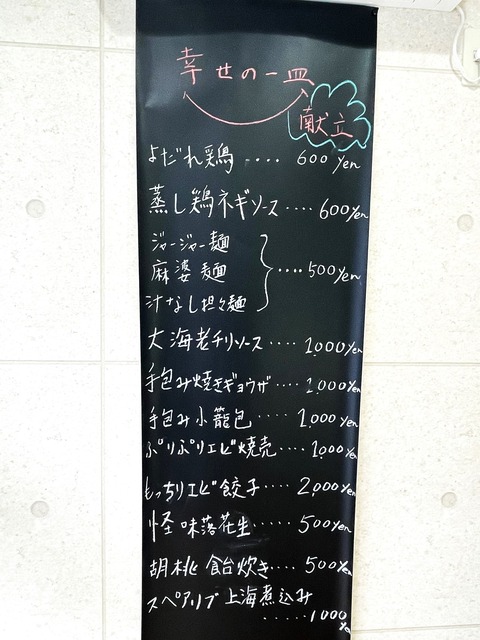 幸せの一皿
献立
よだれ鶏 .... 600 yen
蒸し鶏ネギソース .... 600yen
ジャージャー麺
麻婆麺
汁なし担々麺
.... 500yen
大海老チリソース .... 1,000yen
手包み焼きギョウザ .... 1,000yen
手包み小籠包 ..... 1,000yen
ぷりぷりエビ焼売 .... 1,000yen
もっちりエビ餃子 .... 2,000yen
怪味落花生 ..... 500yen
胡桃飴炊き .... 500yen
スペアリブ上海煮込み
..... 1000 yen